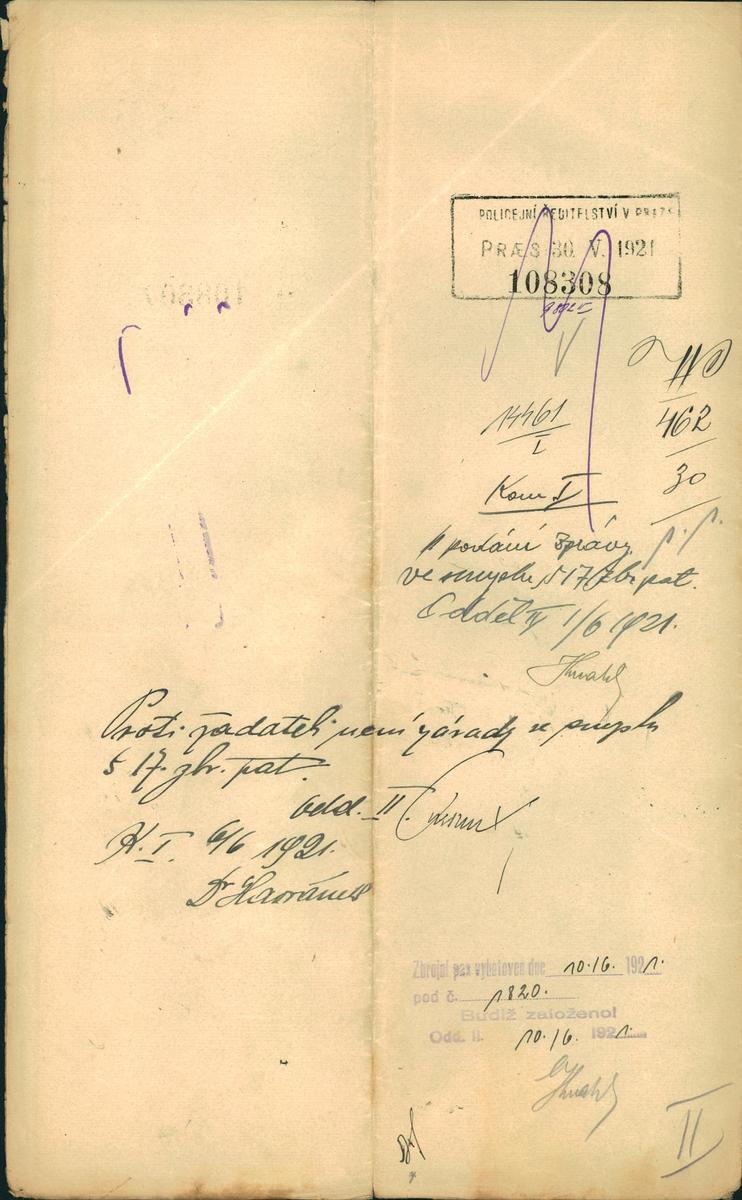 POLICEJNÍ ŘEDITELSTVÍ V PRAZE
PRÆS 30. V. 1921
108308
14461
I
462
30
Kom I
k podání zprávy p. r.
ve smyslu § 17 zbr. pat.
Odděl II 1/6 1921.
Proti žadateli není závady ve smyslu
§ 17. zbr. pat.
Odd. II.
K. I. 6/6 1921.
Dr Havránek
Zbrojní pas vyhotoven dne 10./6. 1921.
pod č. 1820.
Budiž založeno!
Odd. II. 10./6. 1921.
II